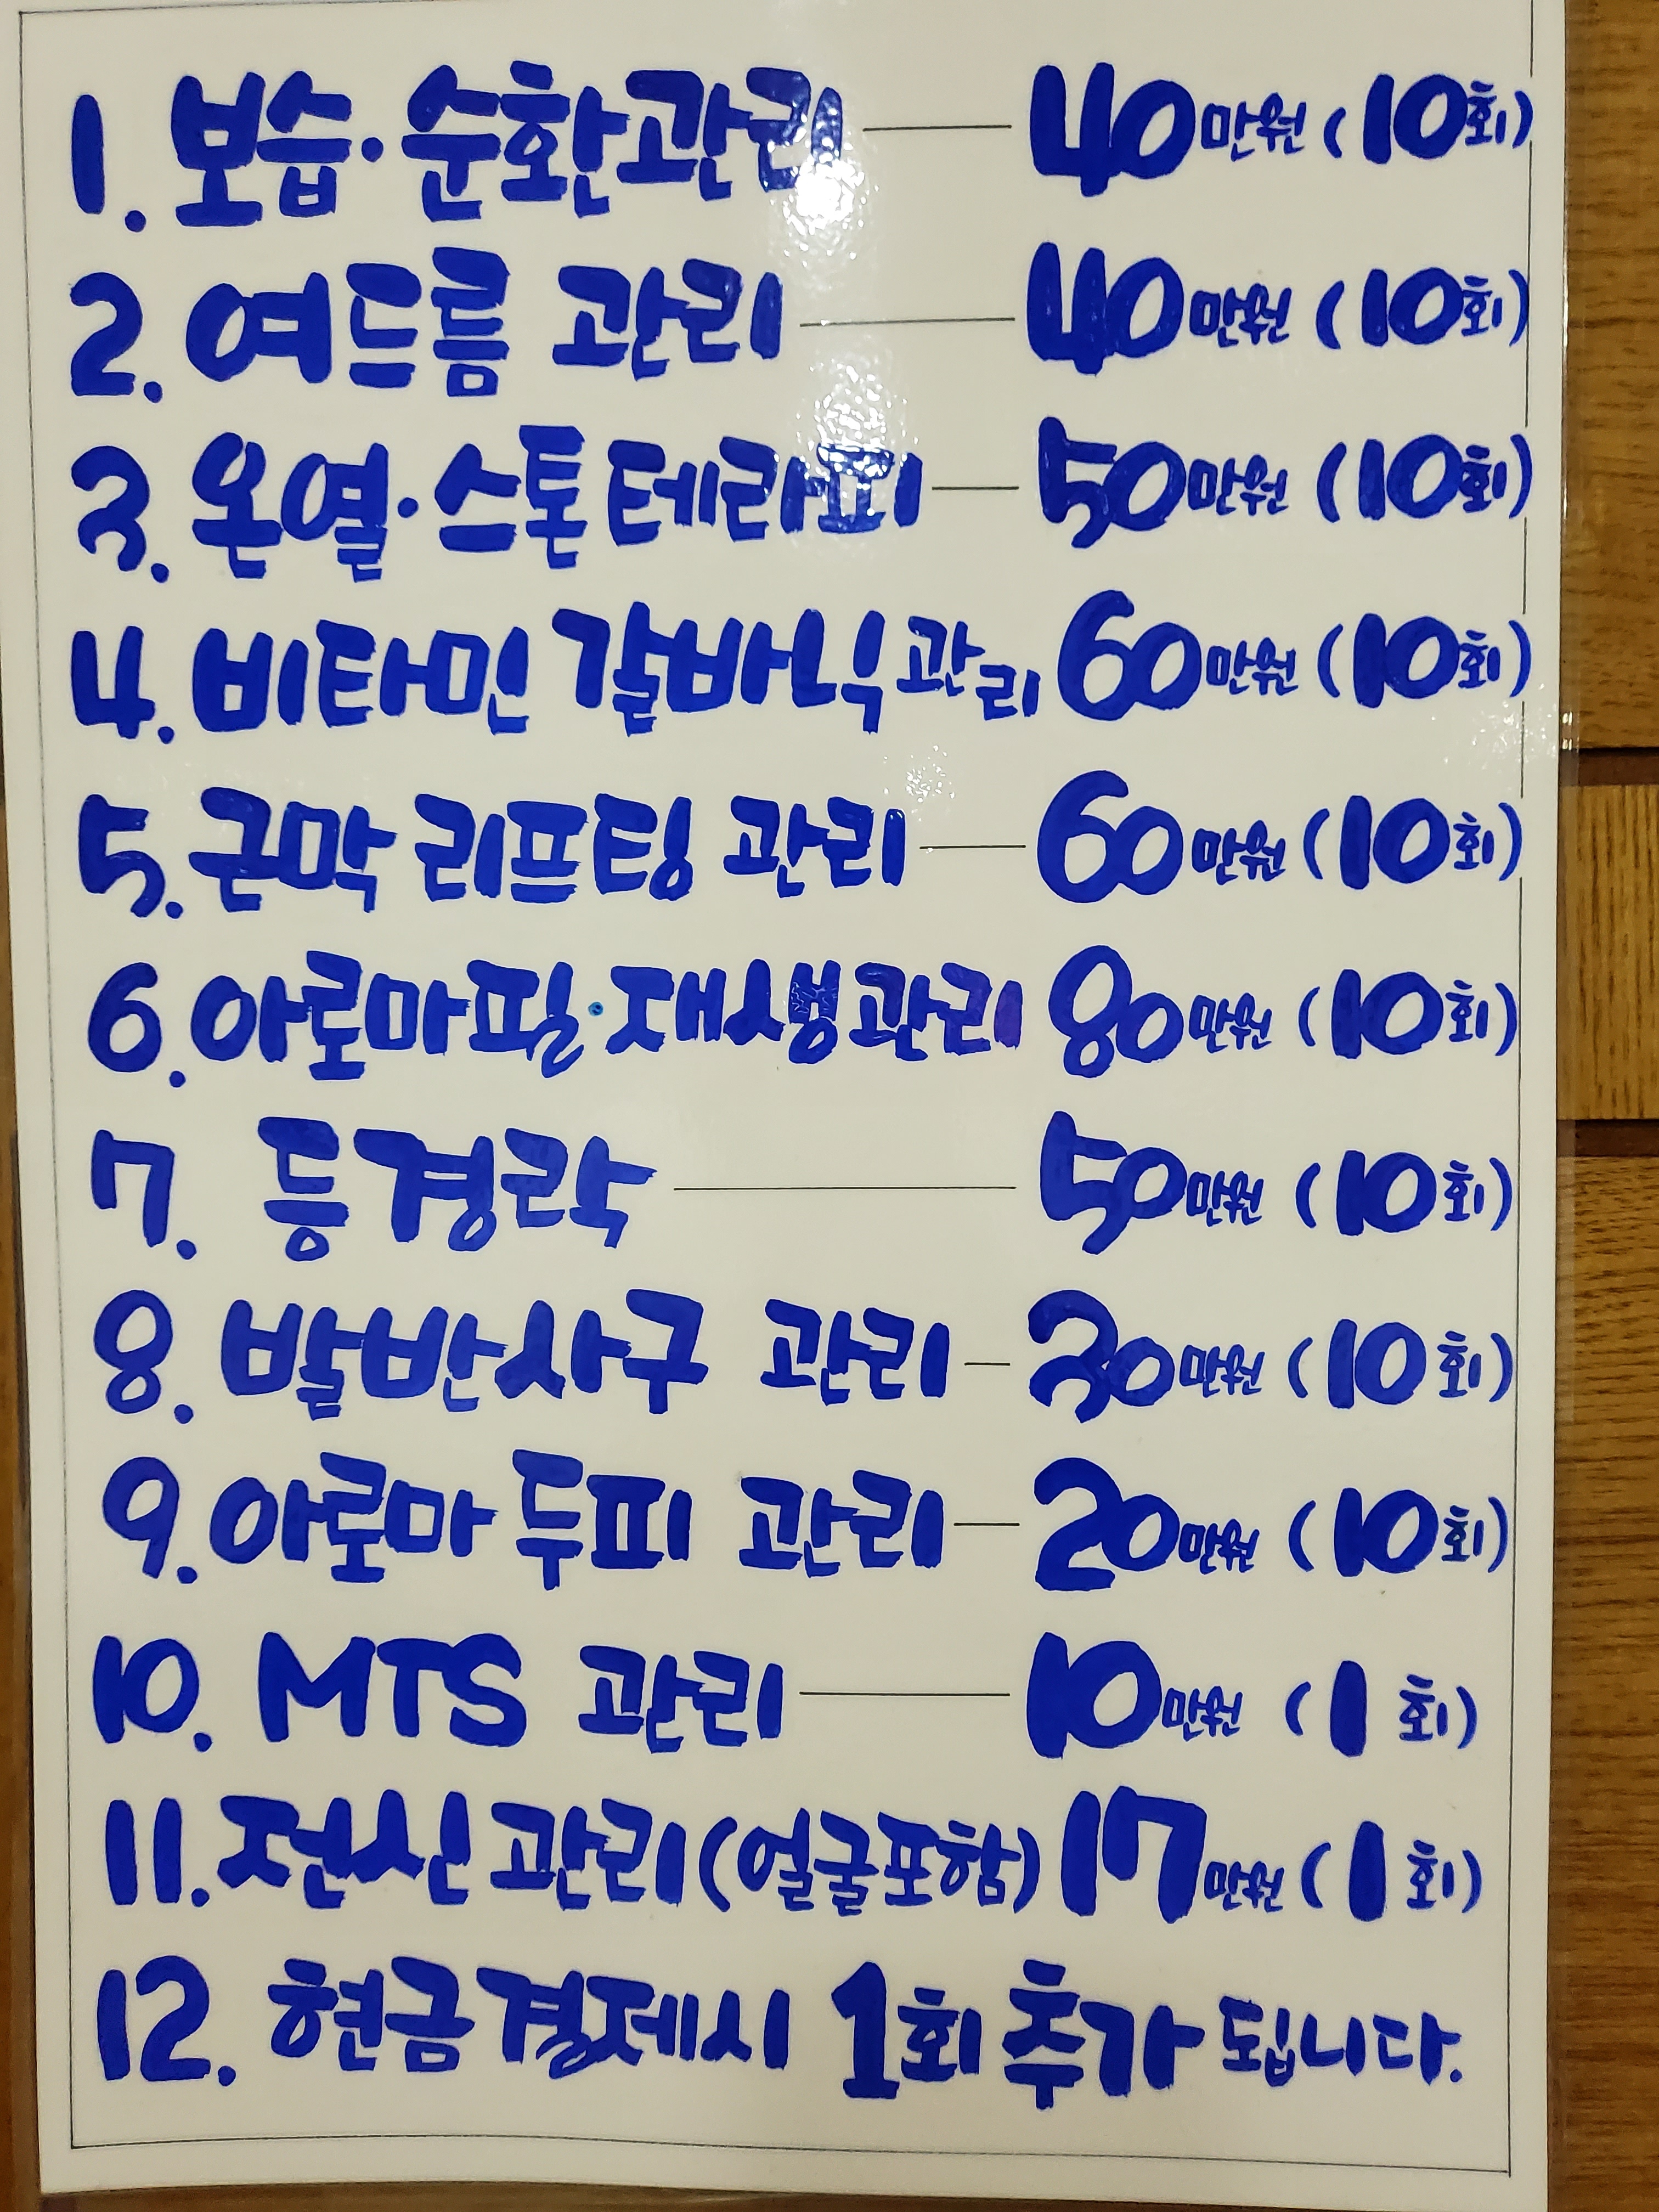 1. 보습·순환관리 40만원 (10회)
2. 여드름 관리 40만원 (10회)
3. 온열·스톤 테라피 50만원 (10회)
4. 비타민 갈바닉 관리 60만원 (10회)
5. 근막 리프팅 관리 60만원 (10회)
6. 아로마필·재생관리 80만원 (10회)
7. 등경락 50만원 (10회)
8. 발반사구 관리 30만원 (10회)
9. 아로마 두피 관리 20만원 (10회)
10. MTS 관리 10만원 (1회)
11. 전신관리(얼굴포함) 17만원 (1회)
12. 현금결제시 1회 추가 됩니다.